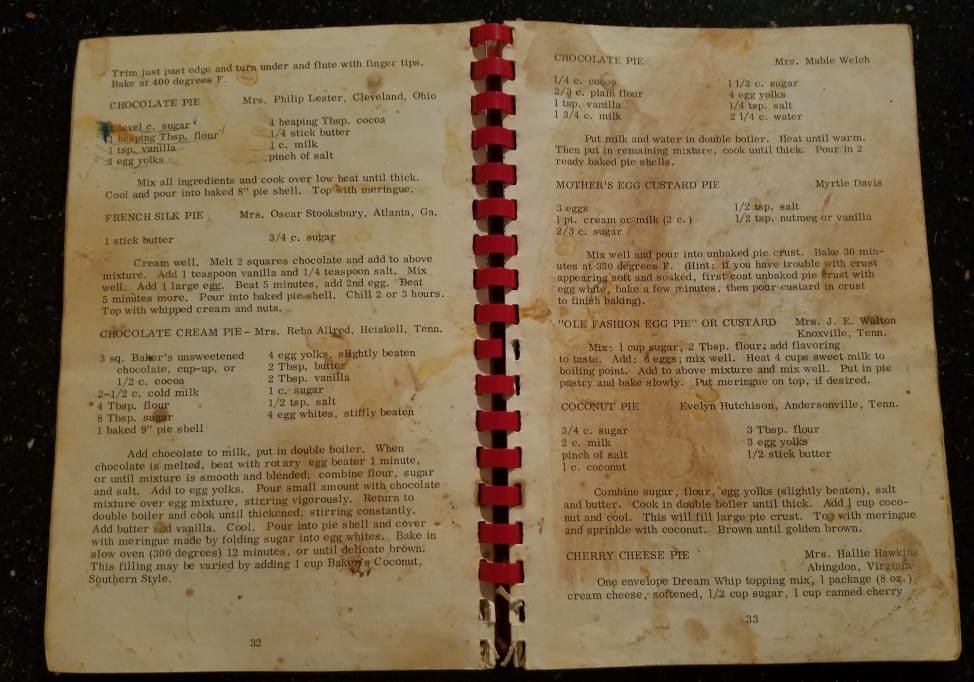 Trim just past edge and turn under and flute with finger tips.
Bake at 400 degrees F.
CHOCOLATE PIE Mrs. Philip Lester, Cleveland, Ohio
1 level c. sugar 1 heaping Tbsp. cocoa
1 heaping Tbsp. flour 1/4 stick butter
1 tsp. vanilla 1 c. milk
2 egg yolks pinch of salt
Mix all ingredients and cook over low heat until thick.
Cool and pour into baked 8" pie shell. Top with meringue.
FRENCH SILK PIE Mrs. Oscar Stooksbury, Atlanta, Ga.
1 stick butter 3/4 c. sugar
Cream well. Melt 2 squares chocolate and add to above
mixture. Add 1 teaspoon vanilla and 1/4 teaspoon salt. Mix
well. Add 1 large egg. Beat 5 minutes, add 2nd egg. Beat
5 minutes more. Pour into baked pie shell. Chill 2 or 3 hours.
Top with whipped cream and nuts.
CHOCOLATE CREAM PIE - Mrs. Reba Allred, Heiskell, Tenn.
3 sq. Baker's unsweetened 4 egg yolks, slightly beaten
chocolate, cup-up, or 2 Tbsp. butter
1/2 c. cocoa 2 Tbsp. vanilla
2-1/2 c. cold milk 1 c. sugar
4 Tbsp. flour 1/2 tsp. salt
8 Tbsp. sugar 4 egg whites, stiffly beaten
1 baked 9" pie shell
Add chocolate to milk, put in double boiler. When
chocolate is melted, beat with rotary egg beater 1 minute,
or until mixture is smooth and blended; combine flour, sugar
and salt. Add to egg yolks. Pour small amount with chocolate
mixture over egg mixture, stirring vigorously. Return to
double boiler and cook until thickened, stirring constantly.
Add butter and vanilla. Cool. Pour into pie shell and cover
with meringue made by folding sugar into egg whites. Bake in
slow oven (300 degrees) 12 minutes, or until delicate brown.
This filling may be varied by adding 1 cup Baker's Coconut,
Southern Style.
32
CHOCOLATE PIE Mrs. Mable Welch
1/4 c. cocoa 1 1/2 c. sugar
2/3 c. plain flour 4 egg yolks
1 tsp. vanilla 1/4 tsp. salt
1 3/4 c. milk 2 1/4 c. water
Put milk and water in double boiler. Heat until warm.
Then put in remaining mixture, cook until thick. Pour in 2
ready baked pie shells.
MOTHER'S EGG CUSTARD PIE Myrtle Davis
3 eggs 1/2 tsp. salt
1 pt. cream or milk (2 c.) 1/2 tsp. nutmeg or vanilla
2/3 c. sugar
Mix well and pour into unbaked pie crust. Bake 30 min-
utes at 350 degrees F. (Hint: if you have trouble with crust
appearing soft and soaked, first coat unbaked pie crust with
egg white, bake a few minutes, then pour custard in crust
to finish baking).
"OLE FASHION EGG PIE" OR CUSTARD Mrs. J. E. Walton
Knoxville, Tenn.
Mix: 1 cup sugar, 2 Tbsp. flour; add flavoring
to taste. Add: 6 eggs; mix well. Heat 4 cups sweet milk to
boiling point. Add to above mixture and mix well. Put in pie
pastry and bake slowly. Put meringue on top, if desired.
COCONUT PIE Evelyn Hutchison, Andersonville, Tenn.
3/4 c. sugar 3 Tbsp. flour
2 c. milk 3 egg yolks
pinch of salt 1/2 stick butter
1 c. coconut
Combine sugar, flour, egg yolks (slightly beaten), salt
and butter. Cook in double boiler until thick. Add 1 cup coco-
nut and cool. This will fill large pie crust. Top with meringue
and sprinkle with coconut. Brown until golden brown.
CHERRY CHEESE PIE Mrs. Hallie Hawkins
Abingdon, Virginia
One envelope Dream Whip topping mix, 1 package (8 oz.)
cream cheese, softened, 1/2 cup sugar, 1 cup canned cherry
33